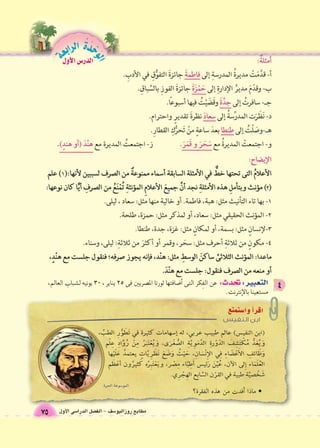 الوحدة الرابعة
الدرس الأول
أمثلة:
أ- قدَّمتْ مديرةُ المدرسةِ إلى فاطمةَ جائزةَ التفوُّقِ في الأدبِ.
ب- وقدَّمَ مديرُ الإدارةِ إلى حَمْزَةَ جائزةَ الفوزِ بالسِّباقِ.
جـ- سافرتُ إلى جِدَّةَ وقضَيْتُ فيها أسبوعًا.
د- نَظَرَت المدرِّسةُ إلى سعادَ نظرةَ تقديرٍ واحترامٍ.
هـ- وصَلْتُ إلى طنطا بعدَ ساعةٍ مِنْ تَحَرُّكِ القطارِ.
و- اجتمعتِ المديرةُ مع سَحَرَ و قَمَرَ. ز- اجتمعتُ المديرة مع هِنْدَ (أو هندٍ).
الإيضاح:
الأعلامُ التى تحتها خطٌّ في الأمثلة السابقة أسماء ممنوعةٌ من الصرف لسببين لأنها: (١) علم
(٢) مؤنث ويتأمل هذه الأمثلةِ تجد أنَّ جميعَ الأعلام المؤنثةِ تُمْنَعُ من الصرفِ أيًّا كان نوعها:
١- بها تاء التأنيث مثل: هبة، فاطمة. أو خالية منها مثل: سعاد ، ليلى.
٢- المؤنث الحقيقي مثل: سعاد، أو لمذكر مثل: حمزة، طلحة.
٣- لإنسانٍ مثل: بسمة، أو لمكانٍ مثل: غزة، جدة، طنطا.
٤- مكون من ثلاثةِ أحرف مثل: سحَر، وقمر أو أكثرَ من ثلاثةٍ: ليلى، وسناء.
ماعدا: المؤنثَ الثلاثيَّ ساكنَ الوسطِ مثل: هنْد، فإنه يجوز صرفه؛ فنقول جلست مع هنْدٍ،
أو منعه من الصرف فنقول: جلست مع هنْدَ.
٤
التعبير، تحدث: عن الفكر التى أضافتها ثورتا المصريين فى ٢٥ يناير، ٣٠ يونيه لشباب العالم،
مستعينا بالإنترنت.
اقرأ واستمتع
ابن النفيس
(ابن النفيس) عالم طبيب عربي، له إسهامات كثيرة في تَطَوُّرِ الطِّب،
وَيُعَدُّ مُكْتَشِفَ الدَّوْرَةِ الدَّمَوِيَّةِ الصُّغْرَى، وَيُعْتَبَرُ مِنْ رُوَّادِ عِلْمِ
وظائف الأعضاء في الإنسان، حَيْثُ وَضَعَ نَظَرِيَّاتٍ يَعْتَمِدُ عَلَيْهَا
العُلَمَاءُ إلى الآن، عُيِّنَ رئيسَ أطباءِ مِصْرَ، ويَعْتَبِرُهُ كثيرونَ أعظم
شخصيةٍ طبيةٍ في القرنِ السابعِ الهجري.
الموسوعة الحرة
• ماذا أفدت من هذه الفقرة؟
مطابع روزاليوسف - الفصل الدراسى الأول
٧٥